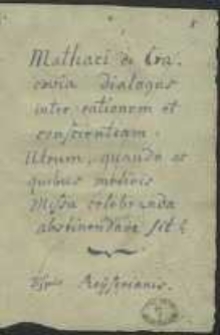 Mathaei de Cra-
covia dialogus
inter rationem et
conscientiam.
Utrum, quando et
quibus mediis
Missa celebranda
abstinendum sit?